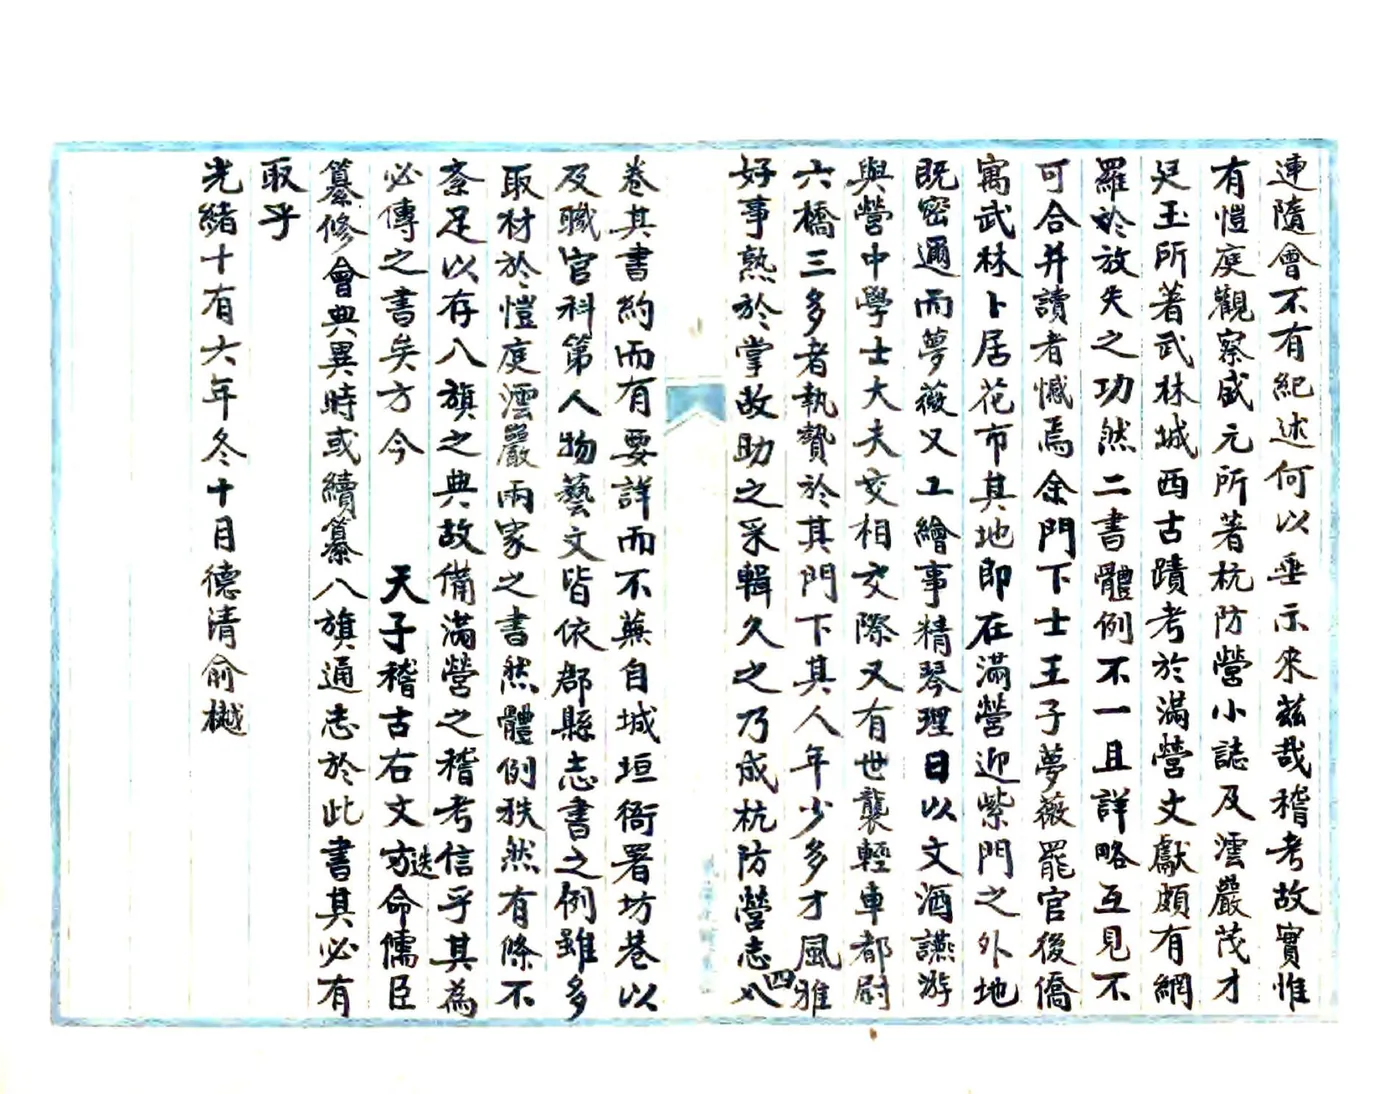 連隨會不有紀述何以垂示來茲哉稽考故實惟
有愷庭觀察盛元所著杭防營小誌及澐巖茂才
廷玉所著武林城西古蹟考於滿營文獻頗有網
羅於放失之功然二書體例不一且詳略互見不
可合并讀者憾焉余門下士王子夢薇罷官後僑
寓武林卜居花市其地即在滿營迎紫門之外地
既密邇而夢薇又工繪事精琴理日以文酒讌游
與營中學士大夫交相交際又有世襲輕車都尉
六橋三多者執贄於其門下其人年少多才風雅
好事熟於掌故助之采輯久之乃成杭防營志四
卷其書約而有要詳而不蕪自城垣衙署坊巷以
及職官科第人物藝文皆依郡縣志書之例雖多
取材於愷庭澐巖兩家之書然體例秩然有條不
紊足以存八旗之典故備滿營之稽考信乎其為
必傳之書矣方今 天子稽古右文方迭命儒臣
纂修會典異時或續纂八旗通志於此書其必有
取乎
光緒十有六年冬十月德清俞樾